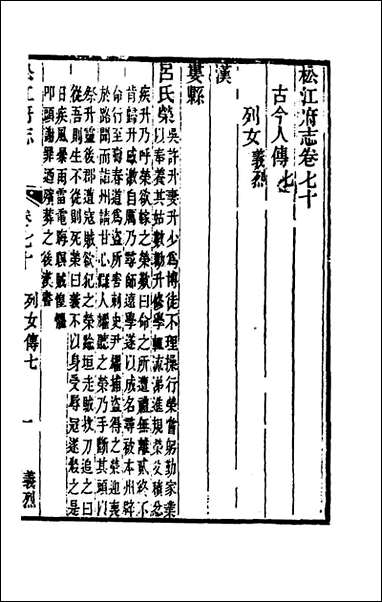 松江府志卷七十
古今人傳七
列女義烈
漢
婁縣
呂氏榮吳許升妻升少爲博徒不理操行榮嘗躬勤家業
以奉養其姑數勸升修學輒流涕進規榮父積忿
疾升乃呼榮欲嫁之榮歎曰命之所遭禮無離貳終不
肯歸升感激自厲乃尋師遠學遂以成名尋被本州辟
命行至壽春道爲盜所害刺史尹耀捕盜得之榮迎喪
於路聞而詣州請甘心讎人耀聽之榮乃手斷其頭以
祭升靈後郡遭寇賊欲犯之榮踰垣走賊拔刀追之曰
從吾則生不從則死榮曰義不以身受辱寇遂殺之是
日疾風暴雨雷電晦冥賊惶懼
叩頭謝罪迺殯葬之後漢書
松江府志 卷七十 列女傳七 一 義烈